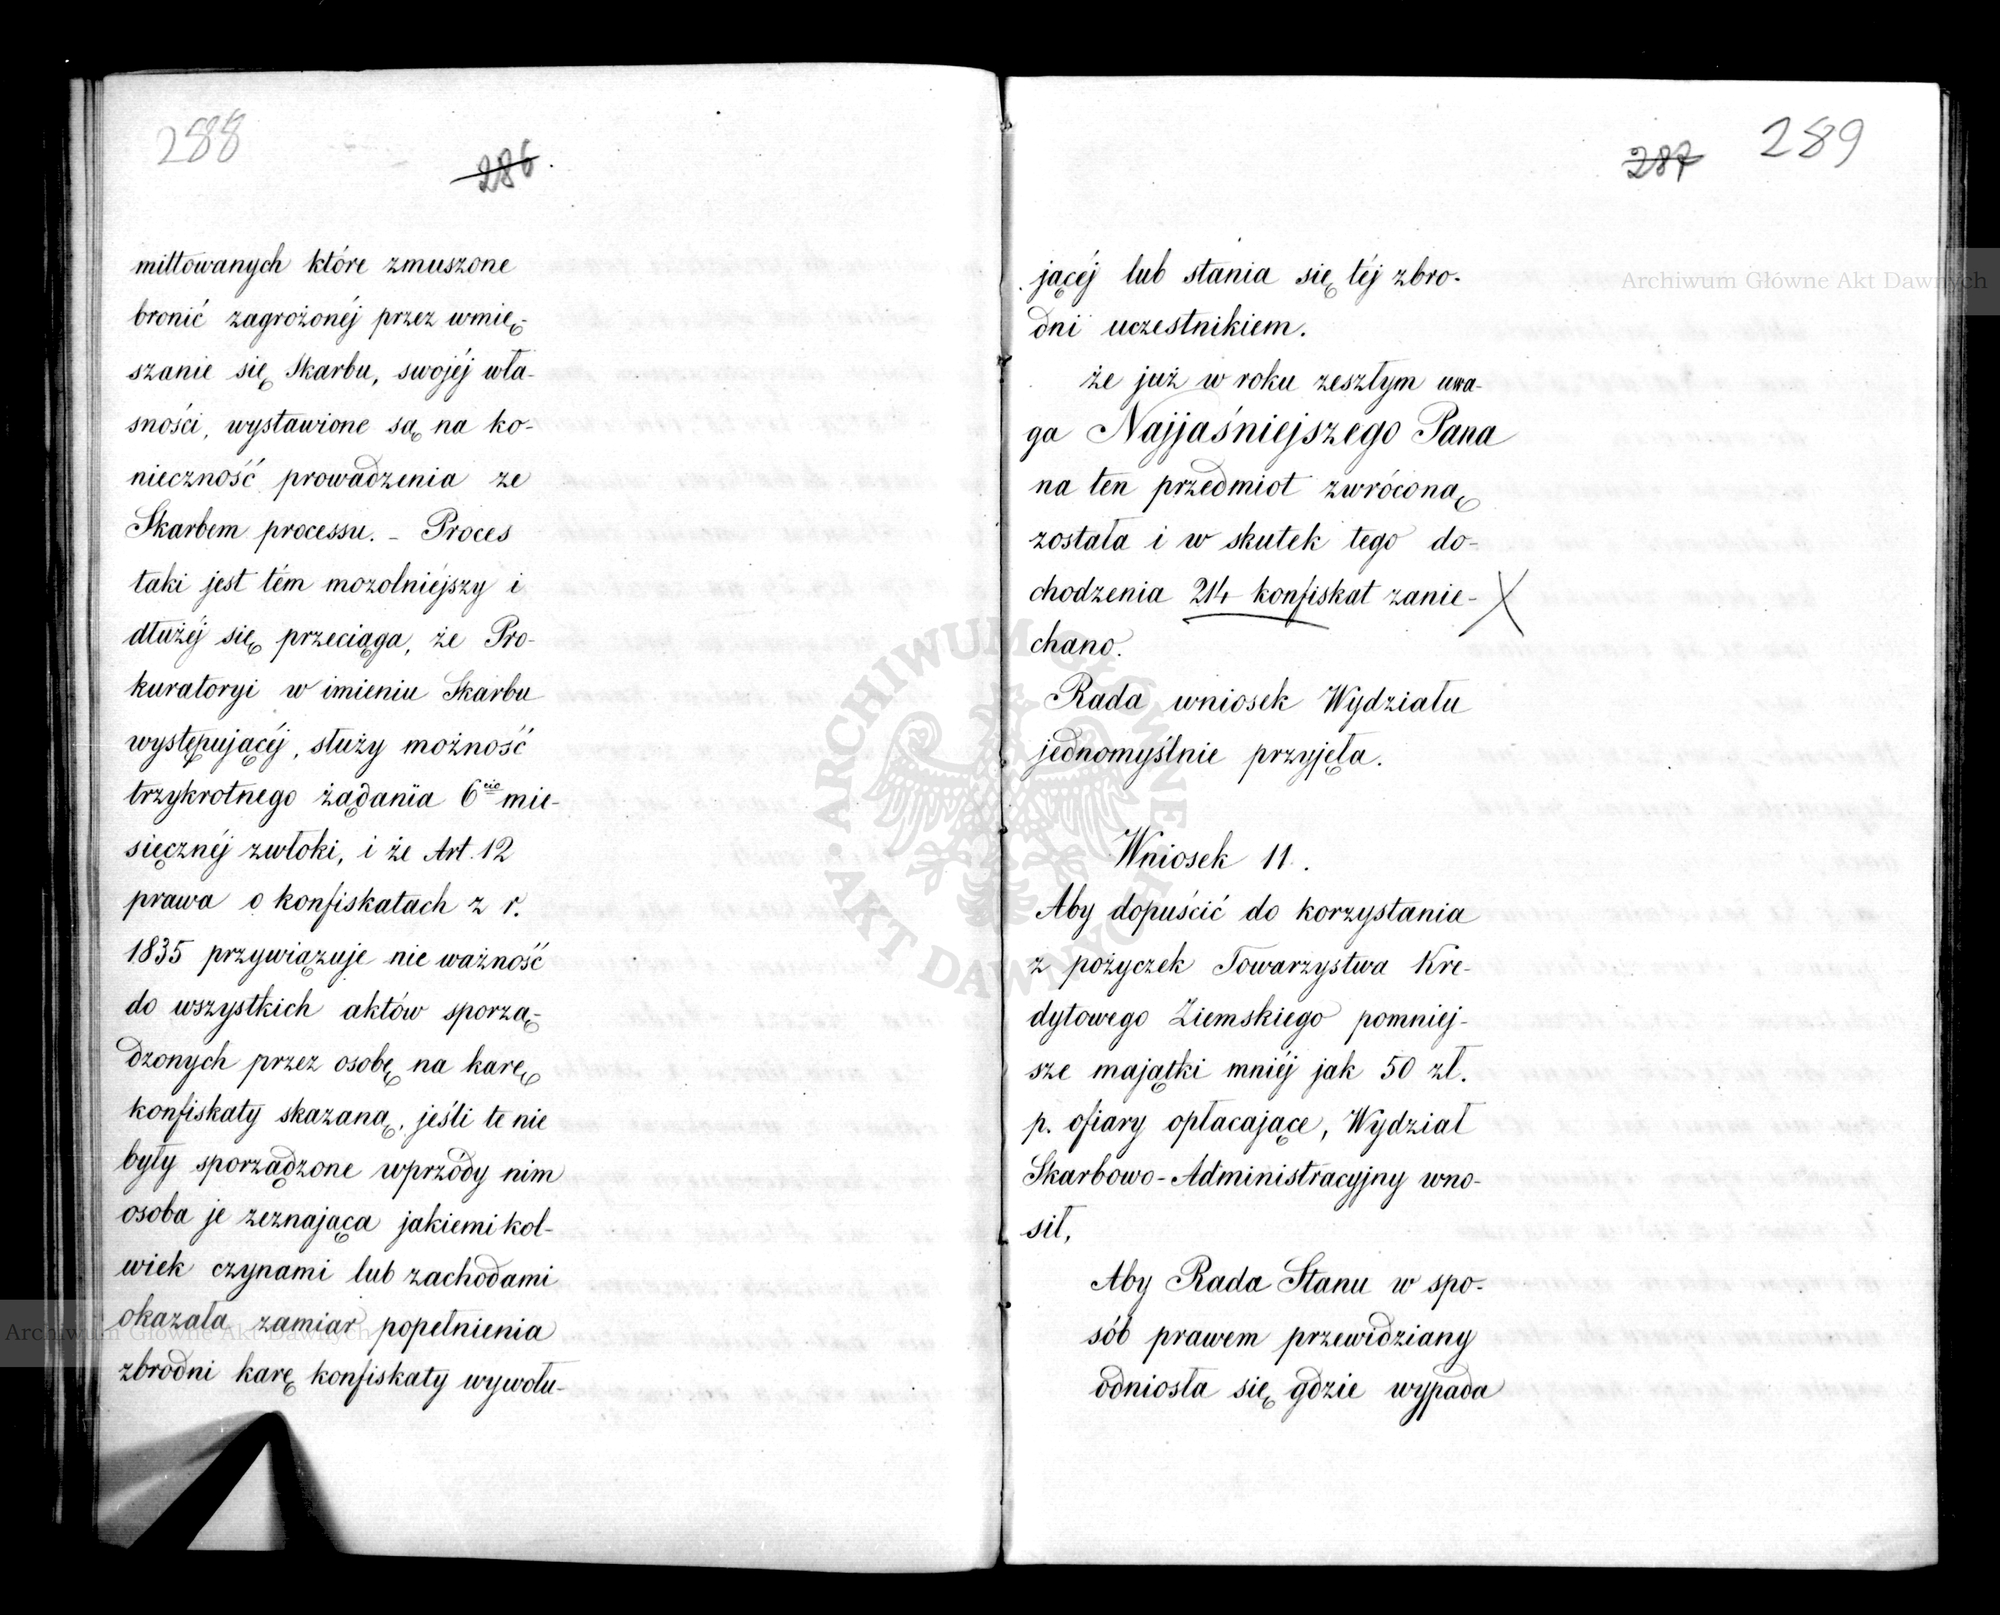 288
286.
mittowanych które zmuszone
bronić zagrożonéj przez wmię-
szanie się Skarbu, swojéj wła-
sności, wystawione są na ko-
nieczność prowadzenia ze
Skarbem processu. - Proces
taki jest tém mozolniéjszy i
dłużéj się przeciąga, że Pro-
kuratoryi w imieniu Skarbu
występującéj, służy możność
trzykrotnego żądania 6cio mie-
sięcznéj zwłoki, i że Art. 12
prawa o konfiskatach z r.
1835 przywiązuje nie ważność
do wszystkich aktów sporzą-
dzonych przez osobę na karę
konfiskaty skazaną, jeśli te nie
były sporządzone wprzódy nim
osoba je zeznająca jakiemikol-
wiek czynami lub zachodami
okazała zamiar popełnienia
zbrodni karę konfiskaty wywołu-
287
289
jącéj lub stania się téj zbro-
dni uczestnikiem.
że już w roku zeszłym uwa-
ga Najjaśniejszego Pana
na ten przedmiot zwróconą
została i w skutek tego do-
chodzenia 214 konfiskat zanie-
chano.
Rada wniosek Wydziału
jednomyślnie przyjęła.
Wniosek 11.
Aby dopuścić do korzystania
z pożyczek Towarzystwa Kre-
dytowego Ziemskiego pomniej-
sze majątki mniéj jak 50 zł.
p. ofiary opłacające, Wydział
Skarbowo-Administracyjny wno-
sił,
Aby Rada Stanu w spo-
sób prawem przewidziany
odniosła się gdzie wypada
Archiwum Główne Akt Dawnych
Archiwum Główne Akt Dawnych
ARCHIWUM GŁÓWNE • AKT DAWNYCH •